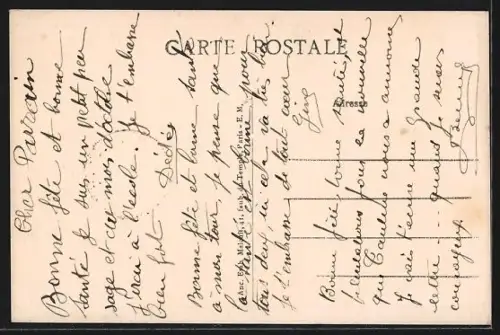 CARTE POSTALE
Adresse
Cher Parrain
Bonne fête et bonne
santé je suis un petit peu
sage et au mois d'octobre
j'irai à l'école. Je t'embrasse
bien fort. Dédée
Bonne fête et bonne santé
à mon tour, je pense que
la santé est bonne pour
tous deux, ici cela va très bien
Je t'embrasse de tout cœur
Bonne fête, bonne santé et
félicitations pour la nouvelle
que Tantine nous a annoncé
Je vais t'écrire une grande
lettre quand je serai
courageux.